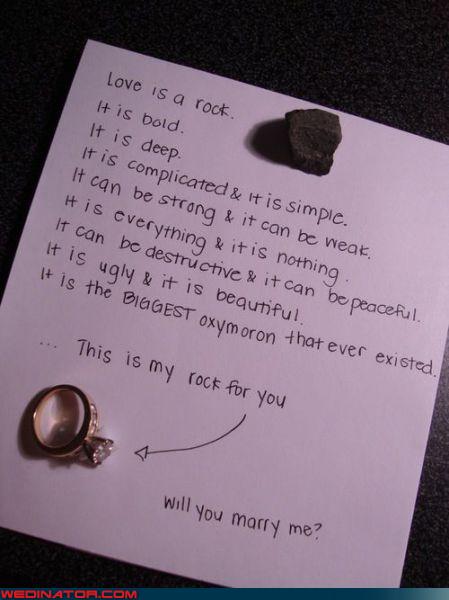 Love is a rock.
It is bold.
It is deep.
It is complicated & It is simple.
It can be strong & it can be weak.
It is everything & it is nothing.
It can be destructive & it can be peaceful.
It is ugly & it is beautiful.
It is the BIGGEST oxymoron that ever existed.
... This is my rock for you
Will you marry me?
WEDINATOR.COM